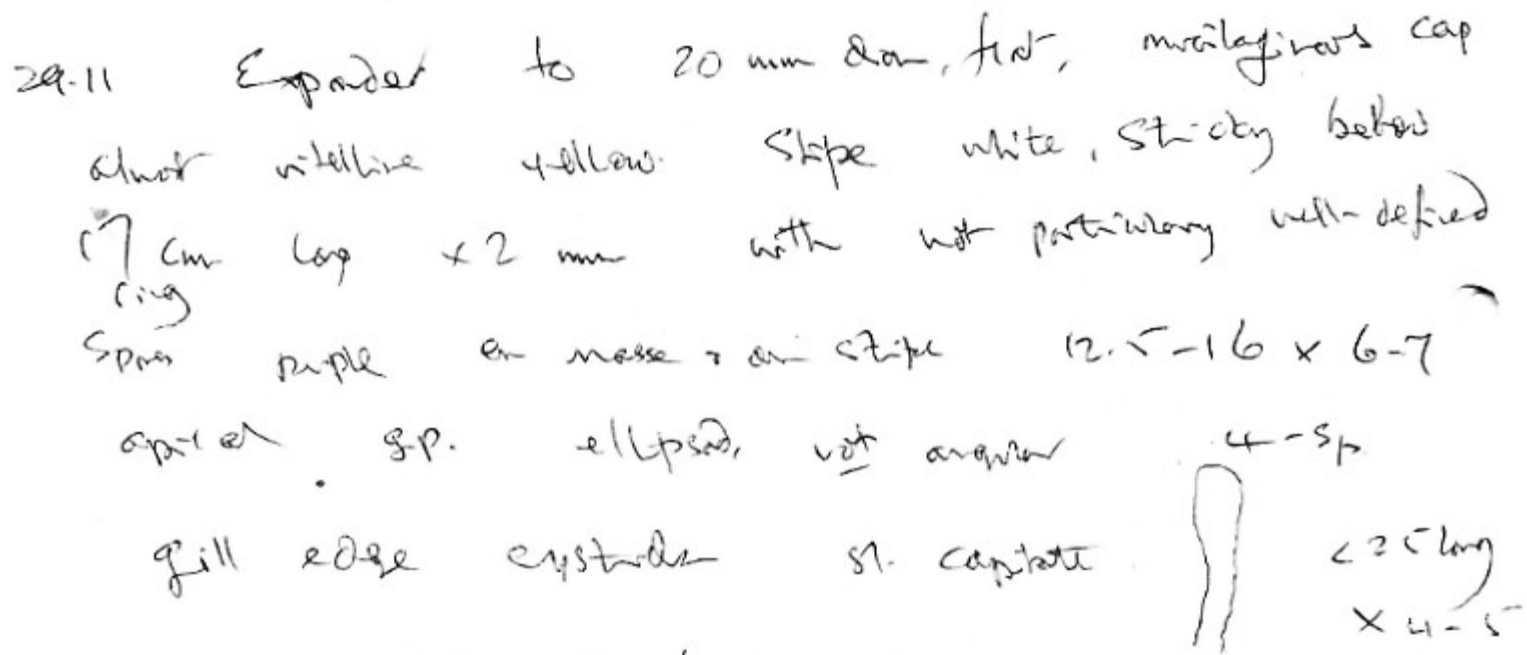 29.11 Expanded to 20 mm diam, flat, mucilaginous cap
almost vitelline yellow. Stipe white, sticky below
17 cm long x 2 mm with not particularly well-defined
ring
Spores purple en masse & on stipe 12.5-16 x 6-7
apical g.p. ellipsoid, not angular 4-sp
gill edge cystidia sl. capitate
<35 long
x 4-5